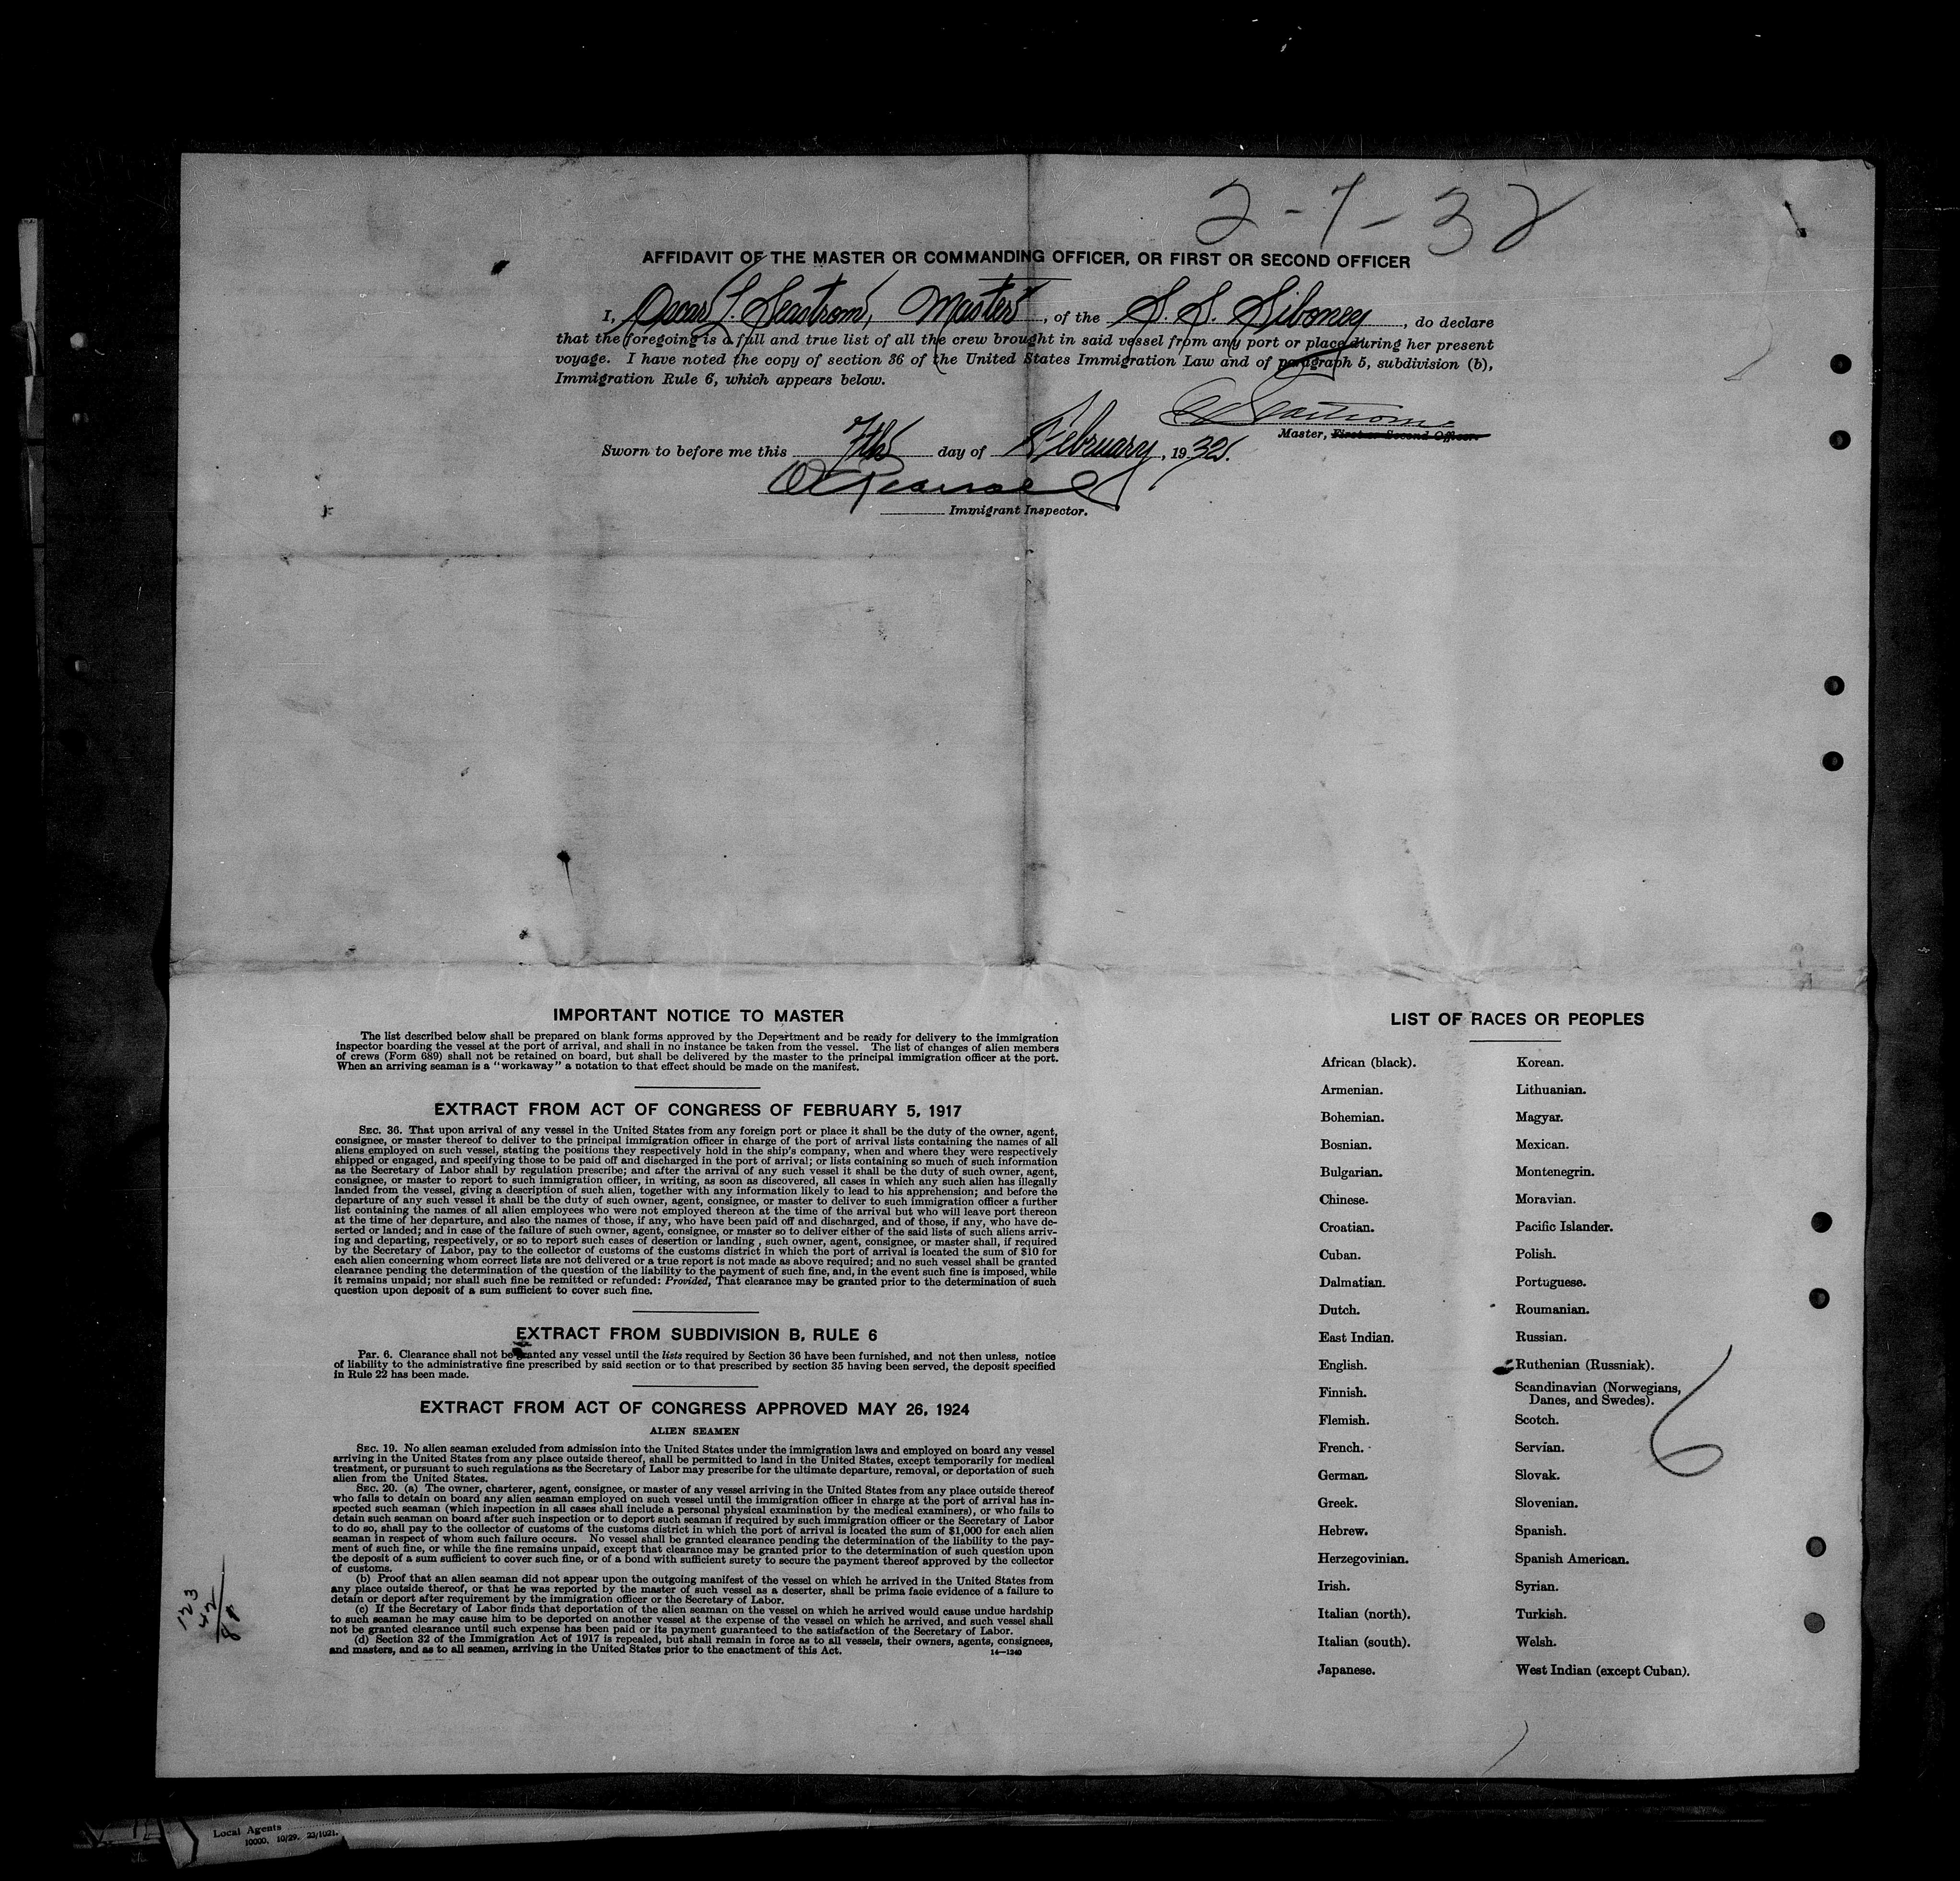 2-7-32
AFFIDAVIT OF THE MASTER OR COMMANDING OFFICER, OR FIRST OR SECOND OFFICER
I, Oscar L. Seastrom, Master, of the S. S. Siboney, do declare
that the foregoing is a full and true list of all the crew brought in said vessel from any port or place during her present
voyage. I have noted the copy of section 36 of the United States Immigration Law and of paragraph 5, subdivision (b),
Immigration Rule 6, which appears below.
Seastrom
Master, First or Second Officer.
Sworn to before me this 7th day of February, 1932.
Immigrant Inspector.
IMPORTANT NOTICE TO MASTER
The list described below shall be prepared on blank forms approved by the Department and be ready for delivery to the immigration
inspector boarding the vessel at the port of arrival, and shall in no instance be taken from the vessel. The list of changes of alien members
of crews (Form 689) shall not be retained on board, but shall be delivered by the master to the principal immigration officer at the port.
When an arriving seaman is a "workaway" a notation to that effect should be made on the manifest.
EXTRACT FROM ACT OF CONGRESS OF FEBRUARY 5, 1917
SEC. 36. That upon arrival of any vessel in the United States from any foreign port or place it shall be the duty of the owner, agent,
consignee, or master thereof to deliver to the principal immigration officer in charge of the port of arrival lists containing the names of all
aliens employed on such vessel, stating the positions they respectively hold in the ship's company, when and where they were respectively
shipped or engaged, and specifying those to be paid off and discharged in the port of arrival; or lists containing so much of such information
as the Secretary of Labor shall by regulation prescribe; and after the arrival of any such vessel it shall be the duty of such owner, agent,
consignee, or master to report to such immigration officer, in writing, as soon as discovered, all cases in which any such alien has illegally
landed from the vessel, giving a description of such alien, together with any information likely to lead to his apprehension; and before the
departure of any such vessel it shall be the duty of such owner, agent, consignee, or master to deliver to such immigration officer a further
list containing the names of all alien employees who were not employed thereon at the time of the arrival but who will leave port thereon
at the time of her departure, and also the names of those, if any, who have been paid off and discharged, and of those, if any, who have de-
serted or landed; and in case of the failure of such owner, agent, consignee, or master so to deliver either of the said lists of such aliens arriv-
ing and departing, respectively, or so to report such cases of desertion or landing , such owner, agent, consignee, or master shall, if required
by the Secretary of Labor, pay to the collector of customs of the customs district in which the port of arrival is located the sum of $10 for
each alien concerning whom correct lists are not delivered or a true report is not made as above required; and no such vessel shall be granted
clearance pending the determination of the question of the liability to the payment of such fine, and, in the event such fine is imposed, while
it remains unpaid; nor shall such fine be remitted or refunded: Provided, That clearance may be granted prior to the determination of such
question upon deposit of a sum sufficient to cover such fine.
EXTRACT FROM SUBDIVISION B, RULE 6
Par. 6. Clearance shall not be granted any vessel until the lists required by Section 36 have been furnished, and not then unless, notice
of liability to the administrative fine prescribed by said section or to that prescribed by section 35 having been served, the deposit specified
in Rule 22 has been made.
EXTRACT FROM ACT OF CONGRESS APPROVED MAY 26, 1924
ALIEN SEAMEN
SEC. 19. No alien seaman excluded from admission into the United States under the immigration laws and employed on board any vessel
arriving in the United States from any place outside thereof, shall be permitted to land in the United States, except temporarily for medical
treatment, or pursuant to such regulations as the Secretary of Labor may prescribe for the ultimate departure, removal, or deportation of such
alien from the United States.
SEC. 20. (a) The owner, charterer, agent, consignee, or master of any vessel arriving in the United States from any place outside thereof
who fails to detain on board any alien seaman employed on such vessel until the immigration officer in charge at the port of arrival has in-
spected such seaman (which inspection in all cases shall include a personal physical examination by the medical examiners), or who fails to
detain such seaman on board after such inspection or to deport such seaman if required by such immigration officer or the Secretary of Labor
to do so, shall pay to the collector of customs of the customs district in which the port of arrival is located the sum of $1,000 for each alien
seaman in respect of whom such failure occurs. No vessel shall be granted clearance pending the determination of the liability to the pay-
ment of such fine, or while the fine remains unpaid, except that clearance may be granted prior to the determination of such question upon
the deposit of a sum sufficient to cover such fine, or of a bond with sufficient surety to secure the payment thereof approved by the collector
of customs.
(b) Proof that an alien seaman did not appear upon the outgoing manifest of the vessel on which he arrived in the United States from
any place outside thereof, or that he was reported by the master of such vessel as a deserter, shall be prima facie evidence of a failure to
detain or deport after requirement by the immigration officer or the Secretary of Labor.
(c) If the Secretary of Labor finds that deportation of the alien seaman on the vessel on which he arrived would cause undue hardship
to such seaman he may cause him to be deported on another vessel at the expense of the vessel on which he arrived, and such vessel shall
not be granted clearance until such expense has been paid or its payment guaranteed to the satisfaction of the Secretary of Labor.
(d) Section 32 of the Immigration Act of 1917 is repealed, but shall remain in force as to all vessels, their owners, agents, consignees,
and masters, and as to all seamen, arriving in the United States prior to the enactment of this Act.
14—1240
LIST OF RACES OR PEOPLES
African (black).
Armenian.
Bohemian.
Bosnian.
Bulgarian.
Chinese.
Croatian.
Cuban.
Dalmatian.
Dutch.
East Indian.
English.
Finnish.
Flemish.
French.
German.
Greek.
Hebrew.
Herzegovinian.
Irish.
Italian (north).
Italian (south).
Japanese.
Korean.
Lithuanian.
Magyar.
Mexican.
Montenegrin.
Moravian.
Pacific Islander.
Polish.
Portuguese.
Roumanian.
Russian.
Ruthenian (Russniak).
Scandinavian (Norwegians,
Danes, and Swedes).
Scotch.
Servian.
Slovak.
Slovenian.
Spanish.
Spanish American.
Syrian.
Turkish.
Welsh.
West Indian (except Cuban).
6
123
42
Local Agents
10000. 10/29. 23/1021.